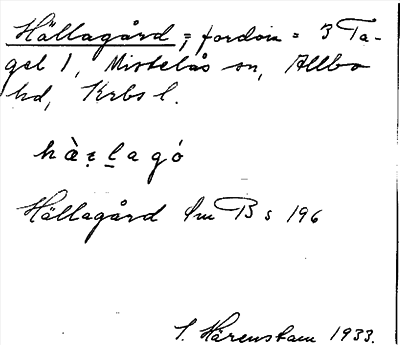 Hällagård, = fordom = 3 Ta-
gel 1, Mistelås sn, Allbo
hd, Krbs l.
Hällagård Sm B s 196
S. Härenstam 1933.